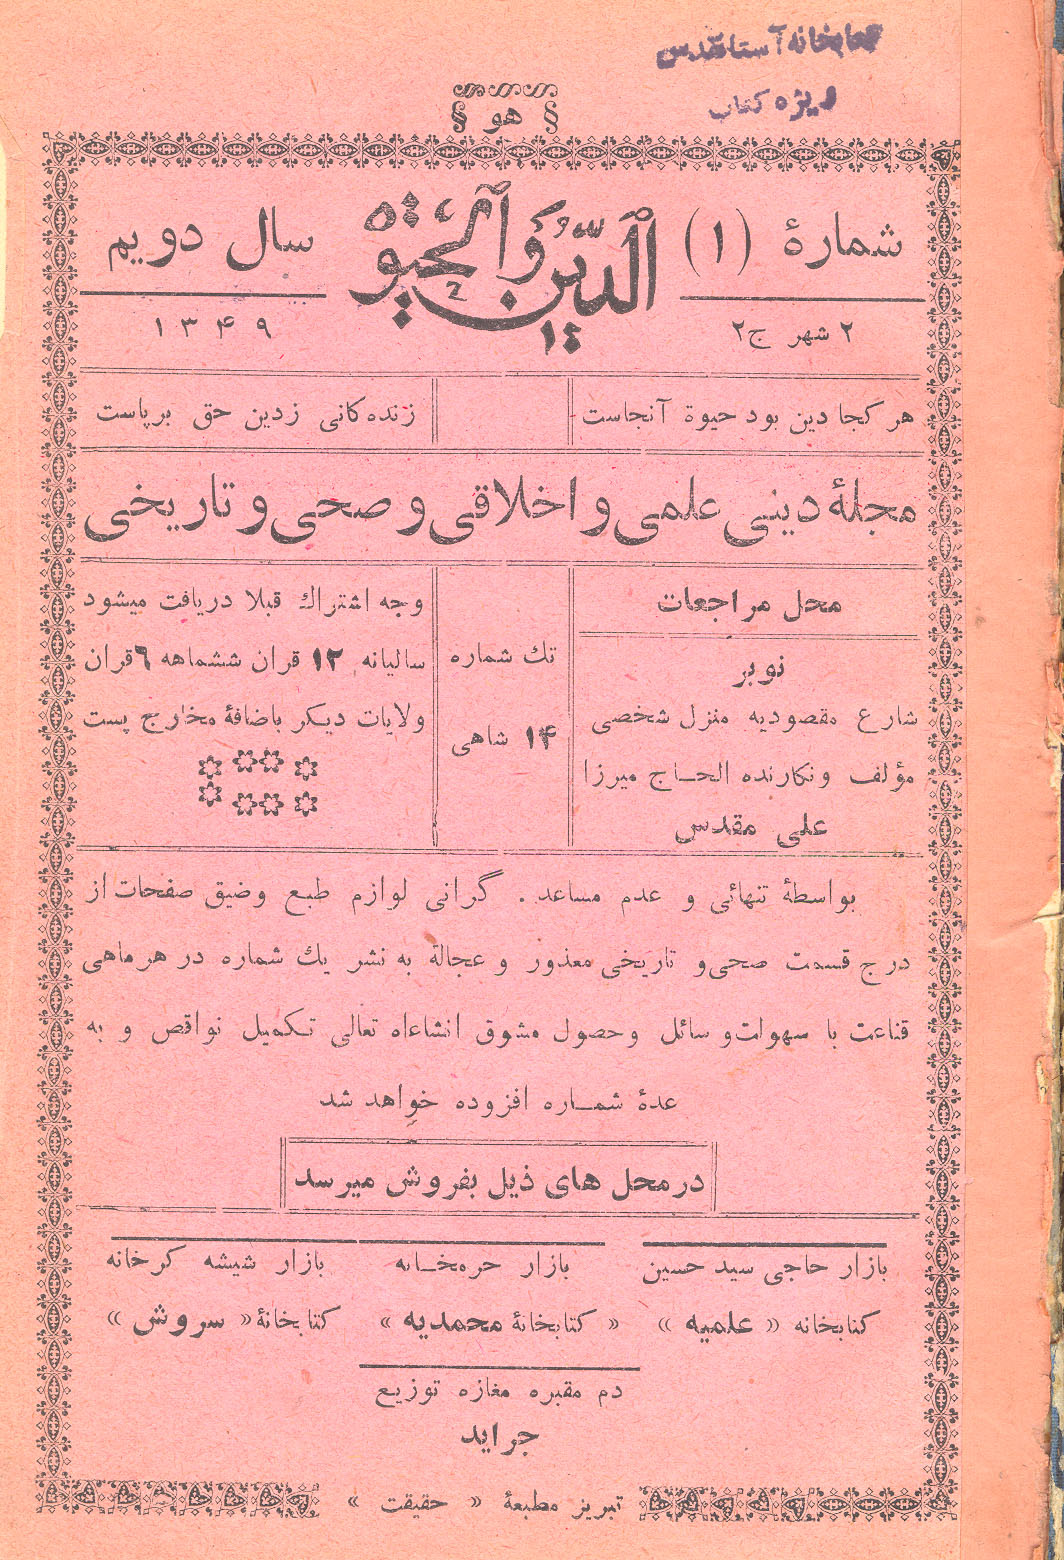 کتابخانه آستانقدس
ویژه کتاب
هو
شمارهٔ (۱)
الدین والحیوة
سال دویم
۲ شهر ج۲
۱۳۴۹
هر کجا دین بود حیوة آنجاست
زنده‌کانی زدین حق برپاست
مجلهٔ دینی علمی و اخلاقی و صحی و تاریخی
محل مراجعات
نوبر
شارع مقصودیه منزل شخصی
مؤلف ونکارنده الحاج میرزا
علی مقدس
تك شماره
۱۴ شاهی
وجه اشتراك قبلا دریافت میشود
سالیانه ۱۲ قران ششماهه ۶ قران
ولایات دیکر باضافهٔ مخارج پست
بواسطهٔ تنهائی و عدم مساعد . گرانی لوازم طبع وضیق صفحات از
درج قسمت صحی و تاریخی معذور و عجالة به نشر یك شماره در هر ماهی
قناعت با سهولت وسائل وحصول مشوق انشاءاه تعالی تکمیل نواقص و به
عدهٔ شماره افزوده خواهد شد
در محل های ذیل بفروش میرسد
بازار حاجی سید حسین
کتابخانه « علمیه »
بازار حرمخانه
« کتابخانهٔ محمدیه »
بازار شیشه کرخانه
کتابخانهٔ « سروش »
دم مقبره مغازه توزیع
جراید
تبریز مطبعهٔ « حقیقت »